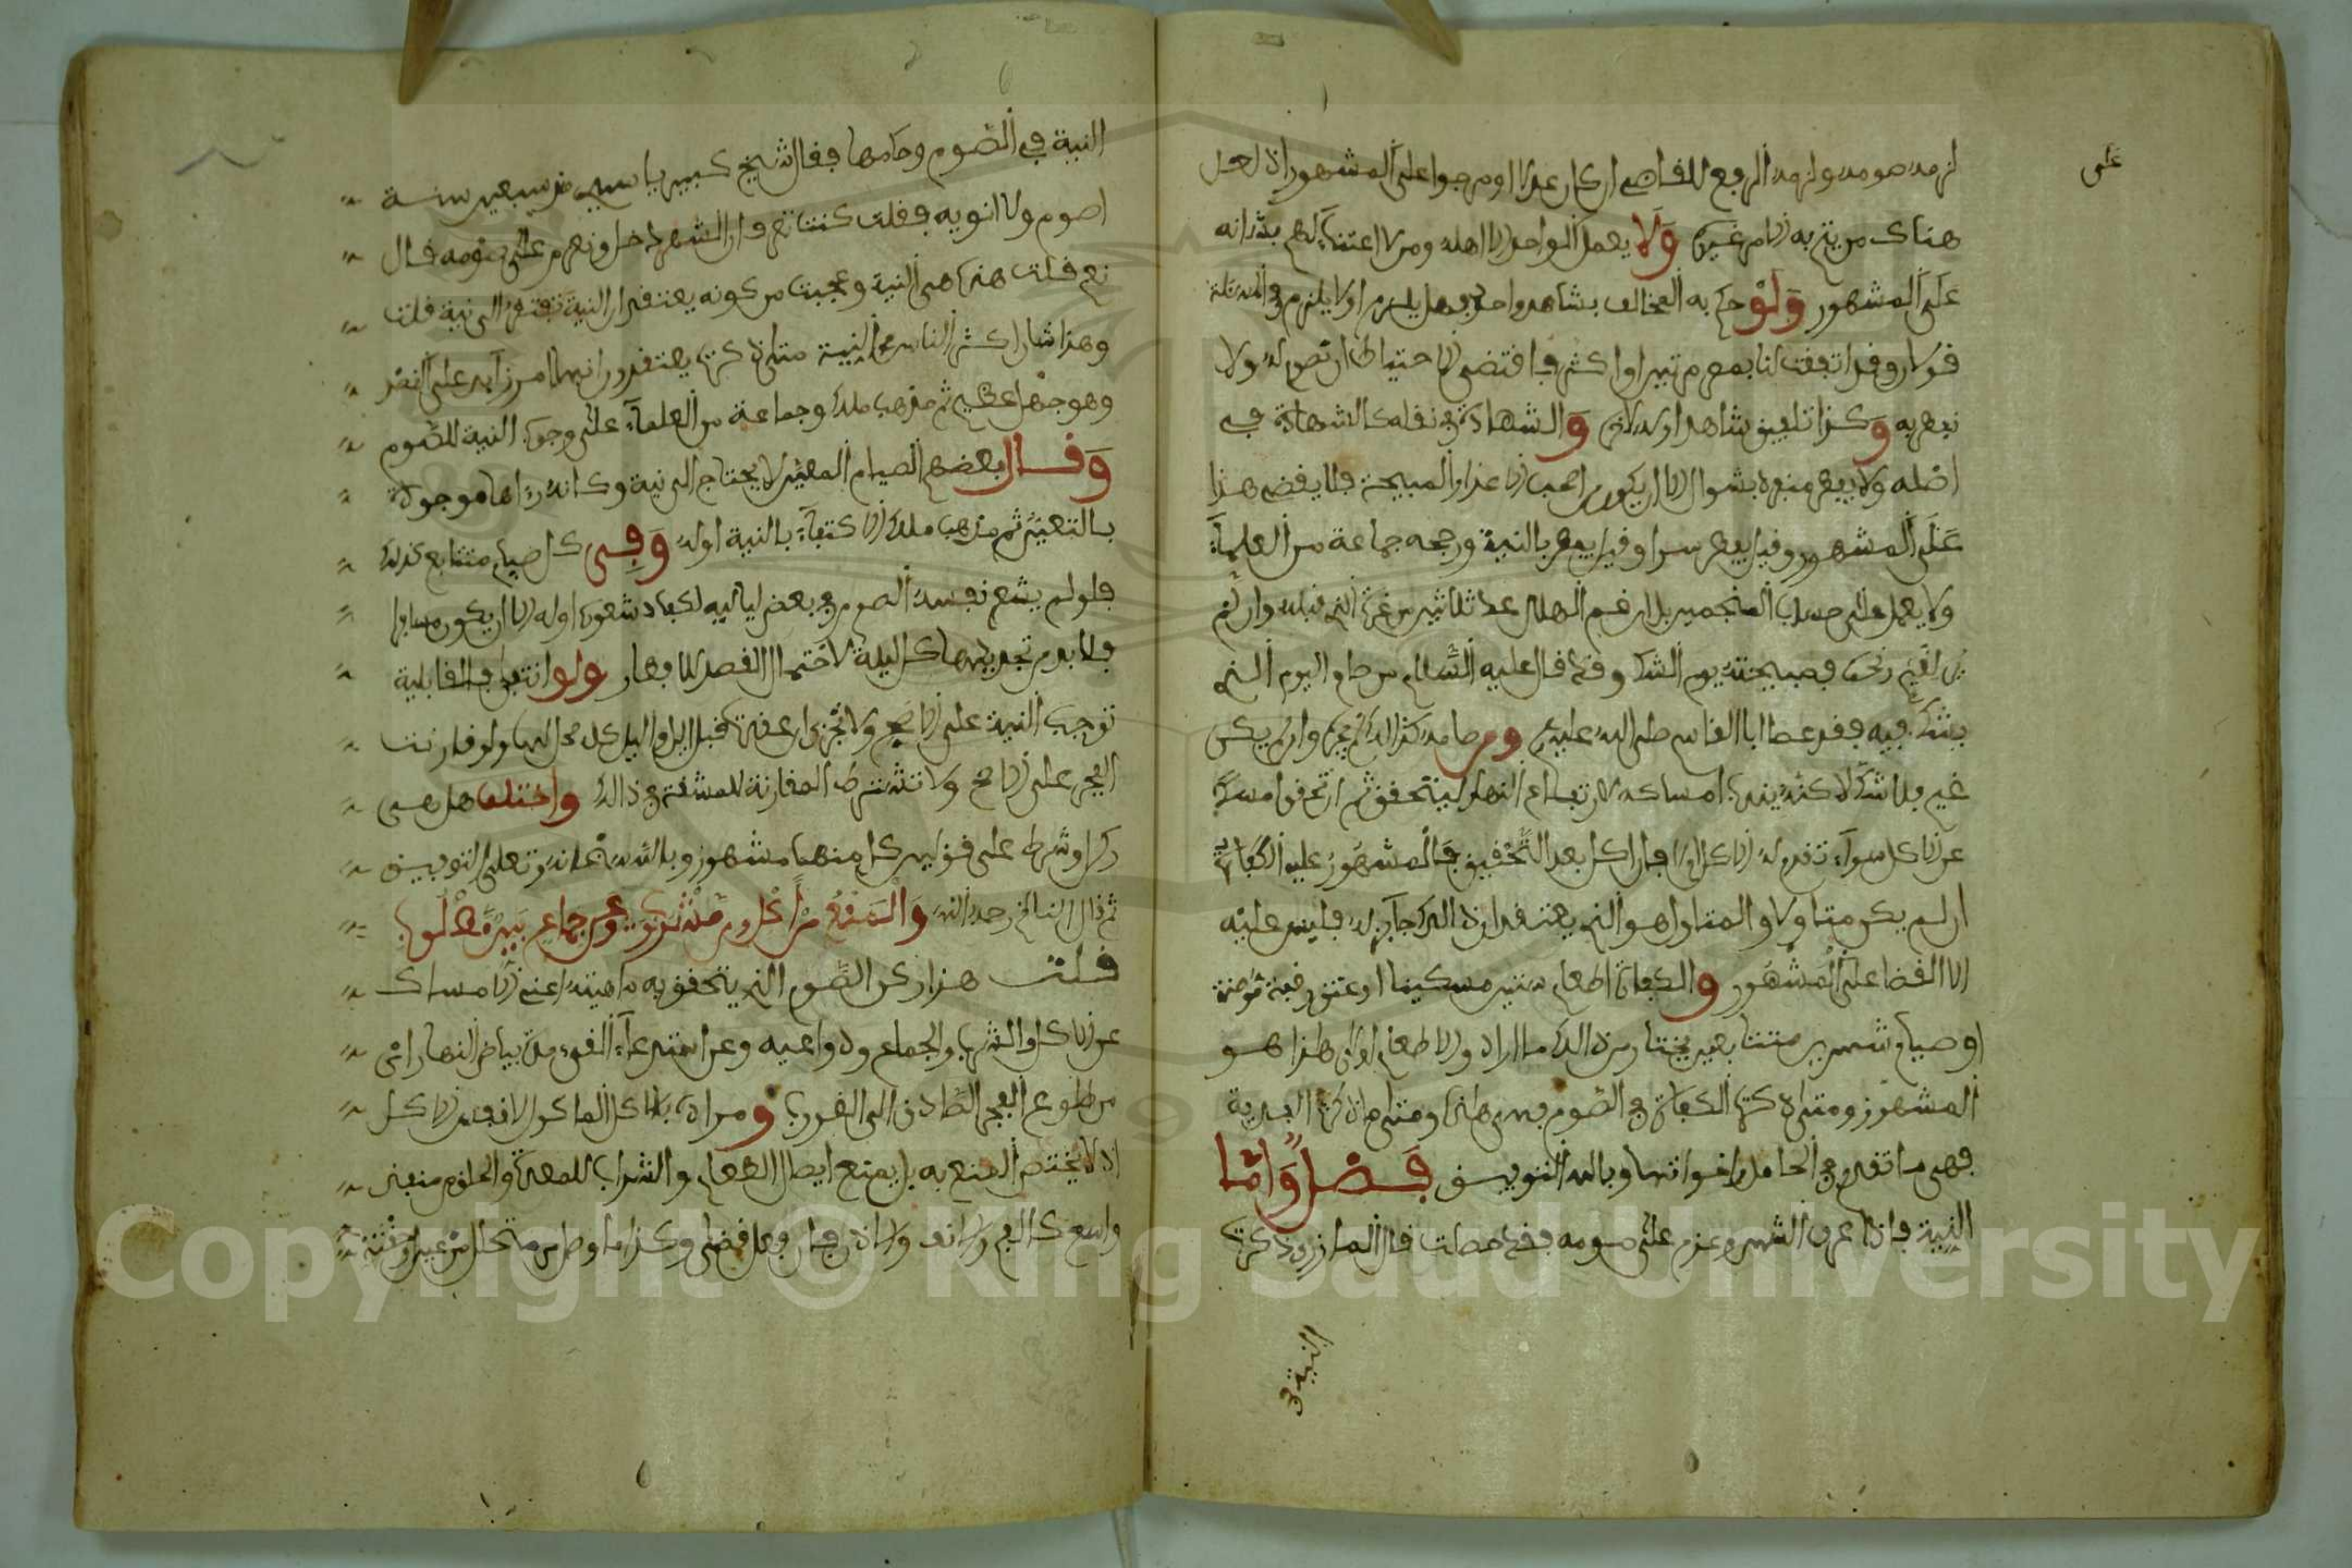 على
لزمه صومه ولزمه الرفع للقاضي إن كان عدلا أو مرجوا على المشهور إذ لعل
هناك من يتم به الأمر غيره ولا يعمل الواحد إلا أهله ومن لا اعتناء لهم بشأنه
على المشهور ولو حكم به المخالف بشاهد واحد فهل يلزم أو لا يلزم في المسئلة
قولان وقد اتفقت لنا بمصر مرتين أو أكثر فاقتضى الاحتياط أن نصوم له ولا
نفطر به وكذا تلفيق شاهد أوله لآخره والشهادة في نقله كالشهادة في
أصله ولا يفطر منفرد بشوال إلا أن يكون صاحب الأعذار المبيحة فلا يقضي هذا
على المشهور وقيل يفطر سرا وقيل يفطر بالنية ورجحه جماعة من العلماء
ولا يعمل على حساب المنجمين بل إن غم الهلال عد ثلاثين من غرة الذي قبله وإن لم
فصبيحته يوم الشك وقد قال عليه السلام من صام اليوم الذي
يشك فيه فقد عصا أبا القاسم صلى الله عليه ومن صامه كذلك لم يجزه وإن لم يكن
غيم فلا شك لاكنه يندب امساكه لارتفاع النهار ليتحقق ثم إن تحقق أمسك
عن الأكل سواء تقدم له الأكل أم لا فإن أكل بعد التحقيق فالمشهور عليه الكفارة
إن لم يكن متأولا والمتأول هو الذي يعتقد أن ذلك جائز له فليس عليه
إلا القضا على المشهور والكفارة إطعام ستين مسكينا أو عتق رقبة مؤمنة
أو صيام شهرين متتابعين يختار من ذلك ما أراد والإطعام أولى هذا هو
المشهور ومتى ذكرت الكفارة في الصوم فهي هذه ومتى ما ذكرت الفدية
فهي ما تقدم في الحامل وأخواتها وبالله التوفيق فصل وأما
النية فإذا عرف الشهر وعزم على صومه فقد حصلت قال المازري ذكرت
النية في
النية في الصوم وحكمها فقال شيخ كبير يا سيدي من سبعين سنة
أصوم ولا أنويه فقلت كنت تعرف أن الشهر دخل وتعزم على صومه قال
نعم قلت هذه هي النية وعجبت من كونه يعتقد أن النية تفتقر إلى نية قلت
وهذا شأن أكثر الناس في النية متى ذكرت يعتقدون أنها أمر زائد على القصد
وهو جهل عظيم ثم مذهب ملك وجماعة من العلماء على وجوب النية للصوم
وقال بعضهم الصيام المعين لا يحتاج إلى نية وكأنه رءاها موجودة
بالتعيين ثم مذهب ملك الاكتفاء بالنية أوله وفي كل صيام متتابع كذلك
فلو لم يشعر نفسه الصوم في بعض لياليه لكفاه شعوره أوله إلا أن يكون مسافرا
فلا بد من تجديدها كل ليلة لاحتمال القصد للإفطار ولو انقطع فالقابلية
توجب النية على الأصح ولا تجزي إن عقدت قبل الليل والليل كله محل لها ولو قارنت
الفجر على الأصح ولا تشترط المقارنة للمشقة في ذالك واختلف هل هي
ركن أو شرط على قولين كل منهما مشهور وبالله سبحانه وتعلى التوفيق
ثم قال الناظم رحمه الله والمنع من أكل ومن مشروب وعن جماع بين مطلوب
قلت هذا ركن الصوم الذي يتحقق به ماهيته أعني الإمساك
عن الأكل والشرب والجماع ودواعيه وعن استدعاء القيء مدة بياض النهار أي
من طلوع الفجر الصادق إلى الغروب ومراده بالأكل المأكول لا نفس الأكل
إذ لا يختص المنع به بل يمتنع إيصال الطعام والشراب للمعدة والحلق من منفذ
واسع كالفم والأنف والأذن فإن فعل قضى وكذا ما وصل من متحلل من عين أو حقنة